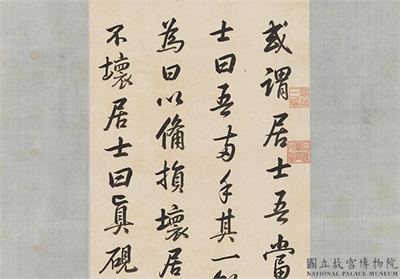 或謂居士吾當
士曰吾兩手其一
為曰以備損壞居
不壞居士曰真硯
國立故宮博物院
NATIONAL PALACE MUSEUM